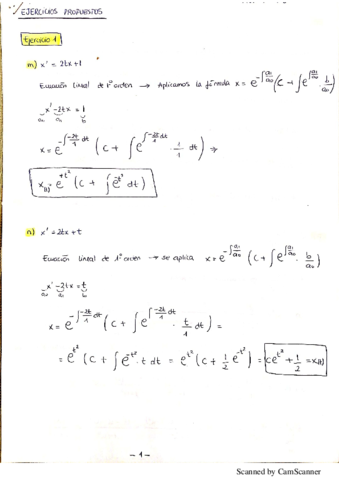 EJERCICIOS PROPUESTOS
Ejercicio 1
m) x' = 2tx+1
Ecuación lineal de 1º orden → Aplicamos la fórmula x = e^{-∫a₁/a₀} (C + ∫e^{∫a₁/a₀} · b/a₀)
x' - 2tx = 1
a₀ a₁ b
x = e^{-∫-2t/1 dt} (C + ∫e^{∫-2t/1 dt} · 1/1 dt) ⇒
x(t) = e^{+t²} (C + ∫e^{-t²} dt)
n) x' = 2tx + t
Ecuación lineal de 1º orden → se aplica x = e^{-∫a₁/a₀} (C + ∫e^{∫a₁/a₀} · b/a₀)
x' - 2tx = t
a₀ a₁ b
x = e^{-∫-2t/1 dt} (C + ∫e^{∫-2t/1 dt} · t/1 dt) =
= e^{t²} (C + ∫e^{-t²} · t dt = e^{t²} (C + 1/2 e^{-t²}) = ce^{t²} + 1/2 = x(t)
- 1 -
Scanned by CamScanner